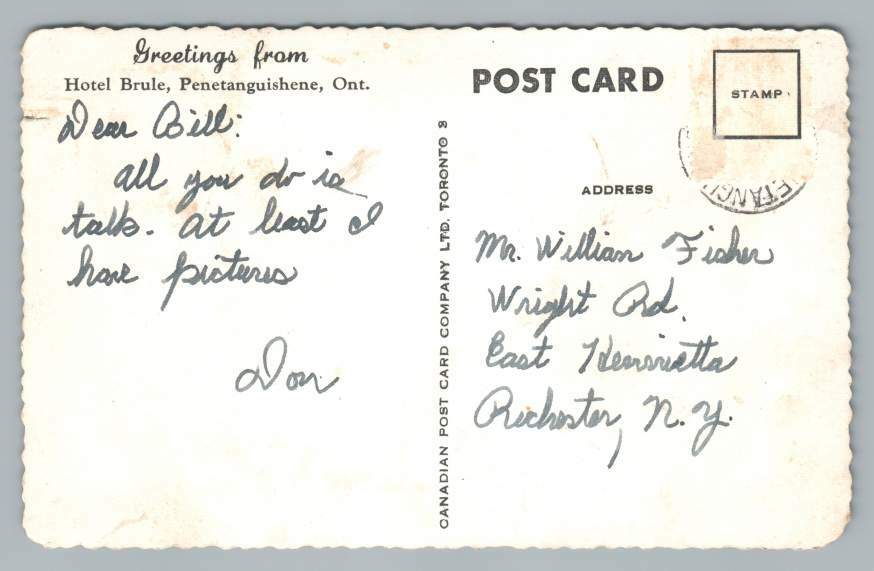 Greetings from
Hotel Brule, Penetanguishene, Ont.
Dear Bill:
All you do is
talk. At least I
have pictures
Don
POST CARD
STAMP
ETANGU
ADDRESS
Mr. William Fisher
Wright Rd.
East Henrietta
Rochester, N.Y.
CANADIAN POST CARD COMPANY LTD. TORONTO 8